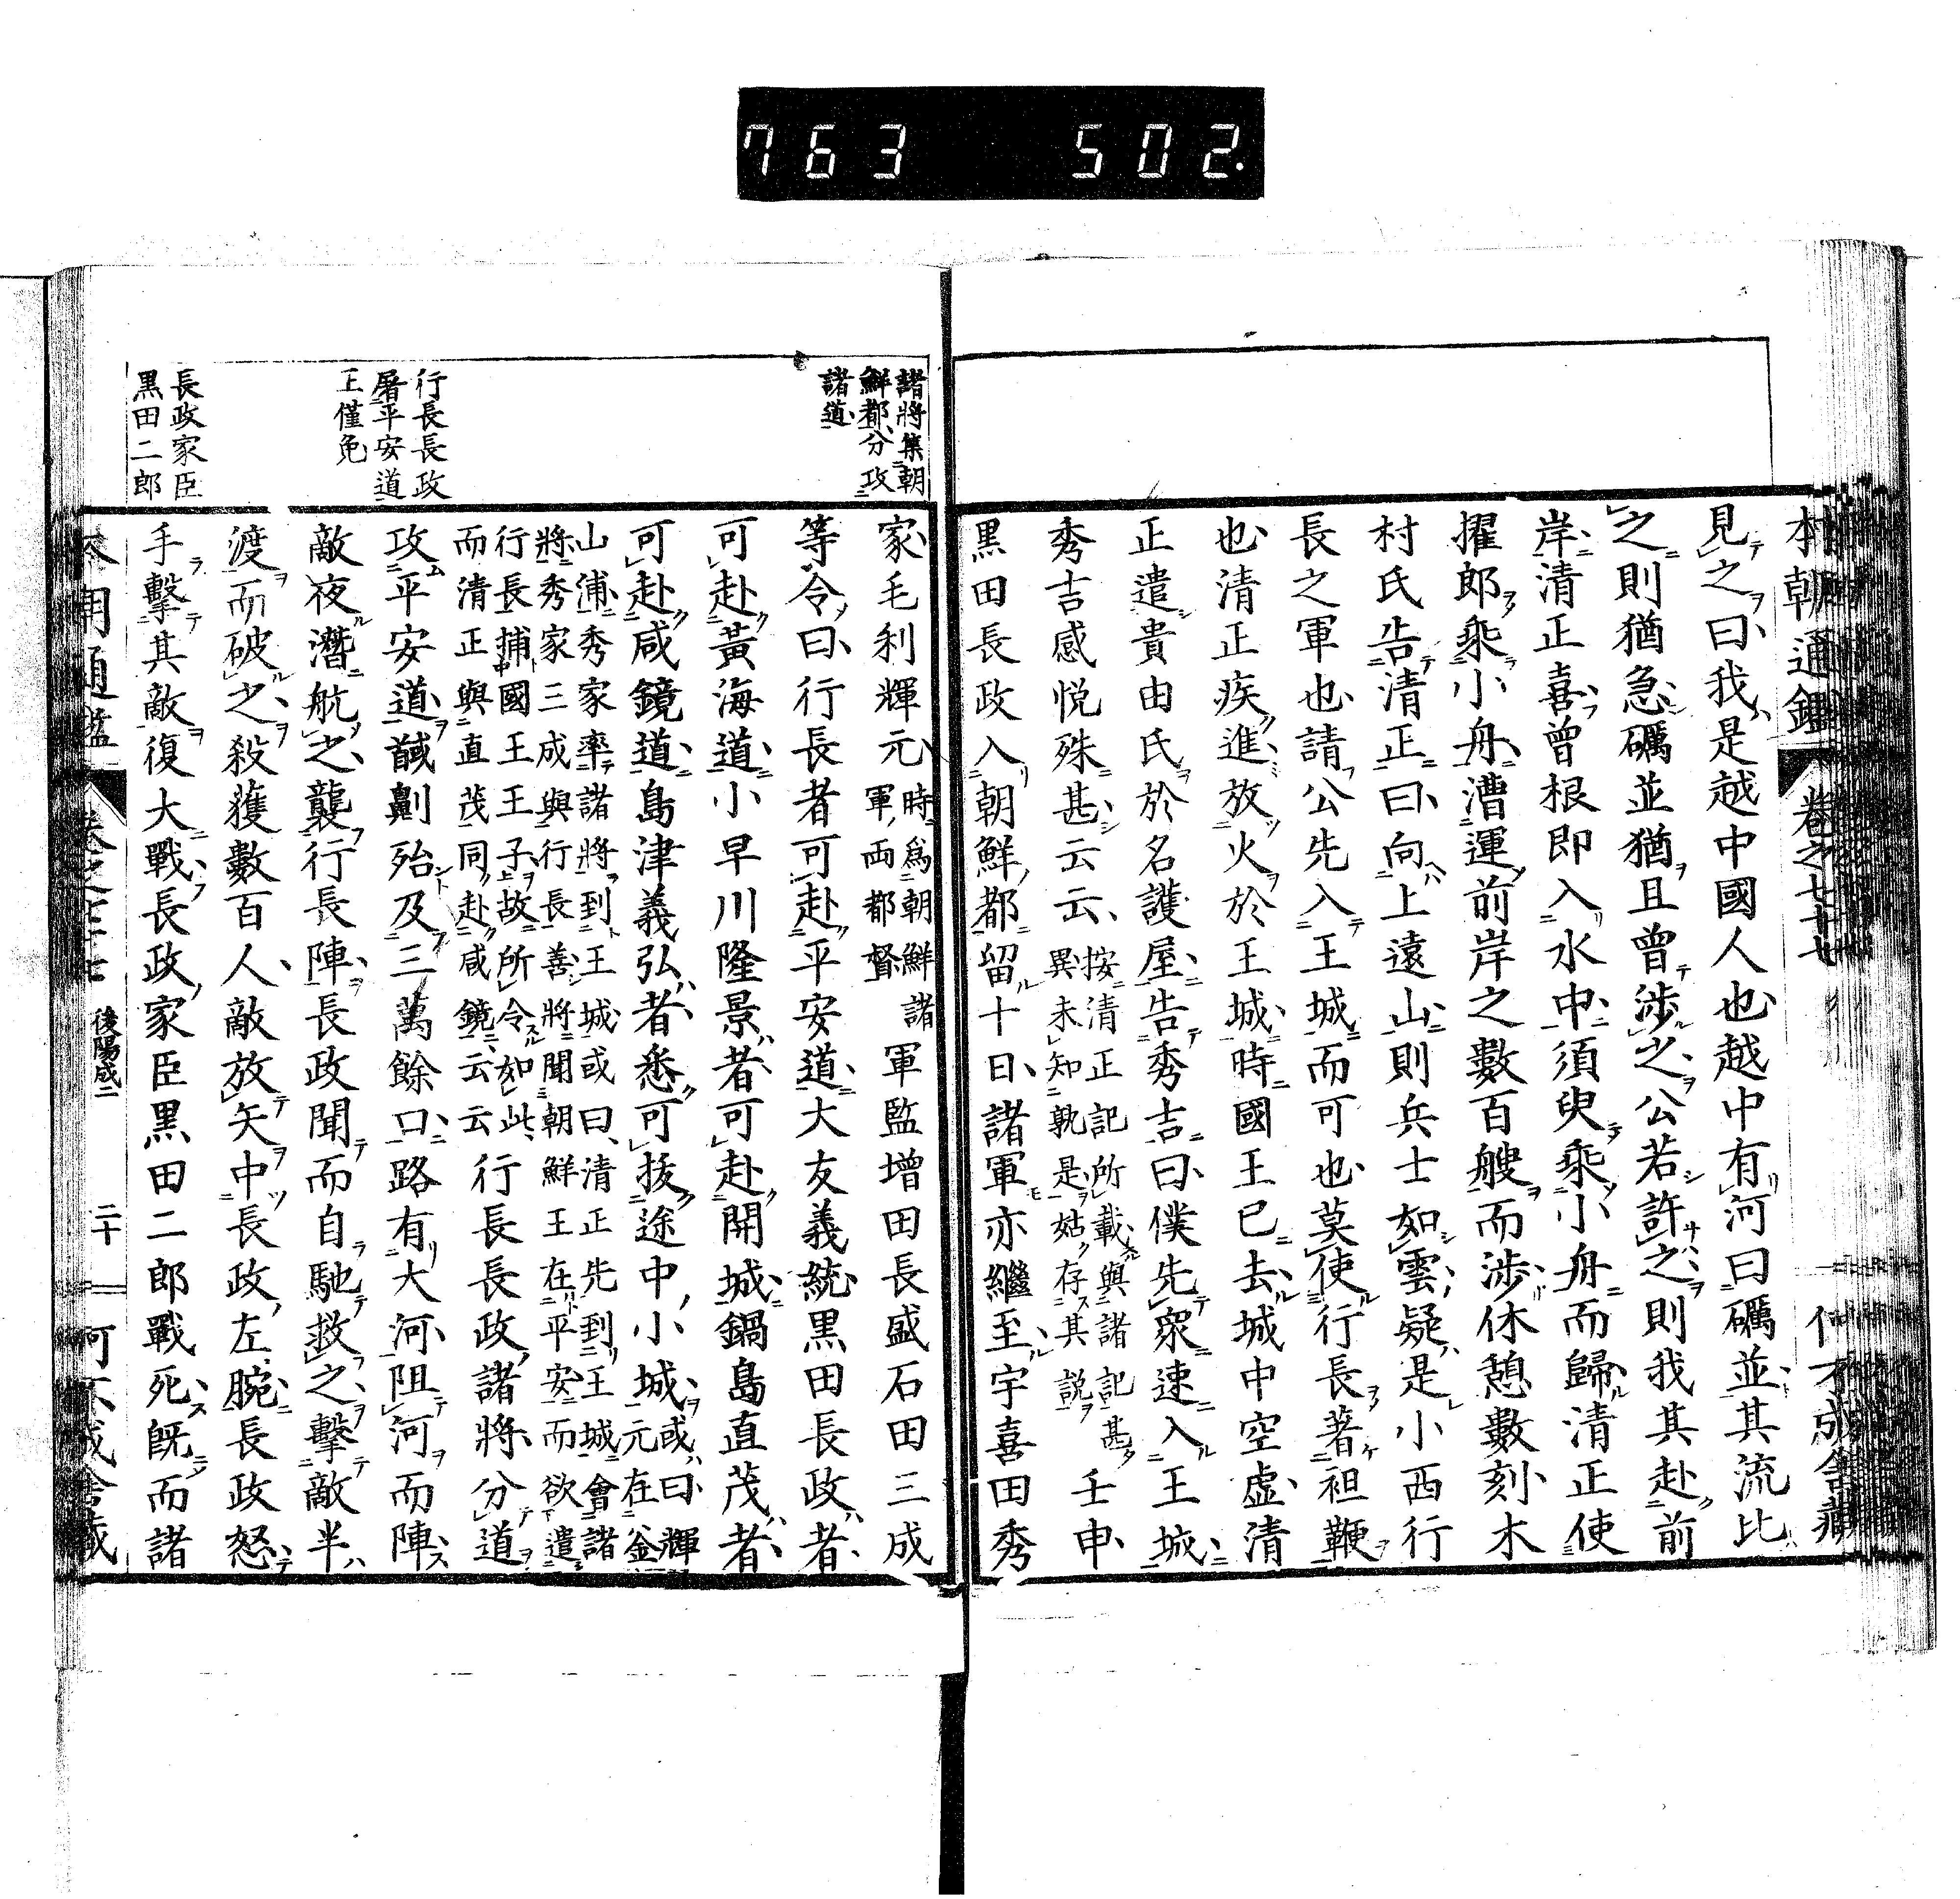 763 502.
本朝通鑑 卷之七十七
見之曰我是越中國人也越中有河曰礪並其流比
之則猶急礪並猶且曾涉之公若許之則我其赴前
岸清正喜曾根即入水中須臾乘小舟而歸清正使
擢郎乘小舟漕運前岸之數百艘而涉休憩數刻木
村氏告清正曰向上遠山則兵士如雲疑是小西行
長之軍也請公先入王城而可也莫使行長著袒鞭
也清正疾進放火於王城時國王已去城中空虛清
正遣貴由氏於名護屋告秀吉曰僕先衆速入王城
秀吉感悅殊甚云云按清正記所載與諸記甚異未知孰是姑存其說壬申
黑田長政入朝鮮都留十日諸軍亦繼至宇喜田秀
諸將集朝
鮮都分攻
諸道
家毛利輝元時爲朝鮮諸軍兩都督軍監增田長盛石田三成
等令曰行長者可赴平安道大友義統黑田長政者
可赴黃海道小早川隆景者可赴開城鍋島直茂者
可赴咸鏡道島津義弘者悉可拔途中小城或曰輝元在釜
山浦秀家率諸將到王城或曰清正先到王城會諸
將秀家三成與行長善將聞朝鮮王在平安而欲遣
行長捕國王王子故所令如此
而清正與直茂同赴咸鏡云云行長長政諸將分道
行長長政
屠平安道
王僅免
攻平安道馘劓殆及三萬餘口路有大河阻河而陣
敵夜潛航之襲行長陣長政聞而自馳救之擊敵半
渡而破之殺獲數百人敵放矢中長政左腕長政怒
長政家臣
黑田二郎
手擊其敵復大戰長政家臣黑田二郎戰死旣而諸
後陽成二 二十